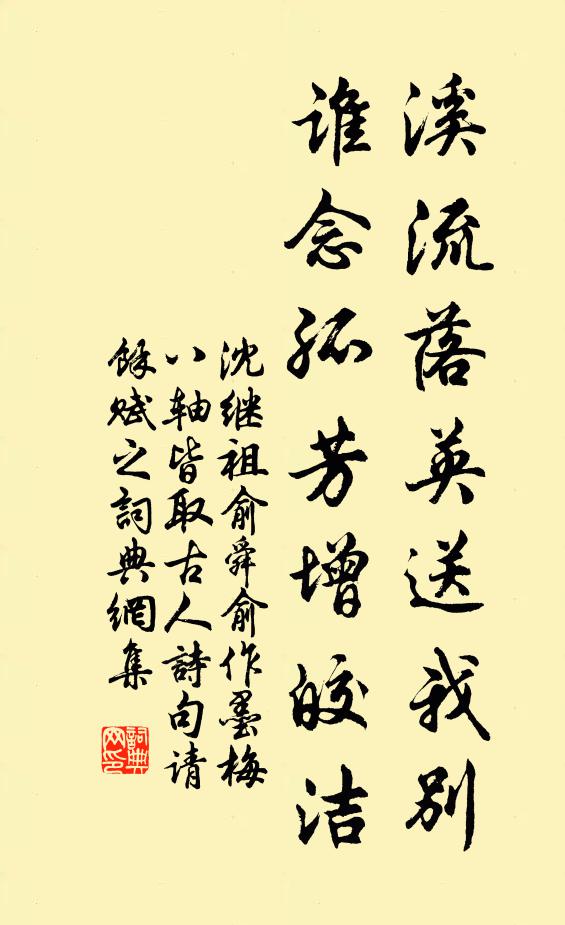 溪流落英送我别
谁念孤芳增皎洁
沈继祖俞舜俞作墨梅
八轴皆取古人詩句请
馀赋之詞典網集
詞典网印